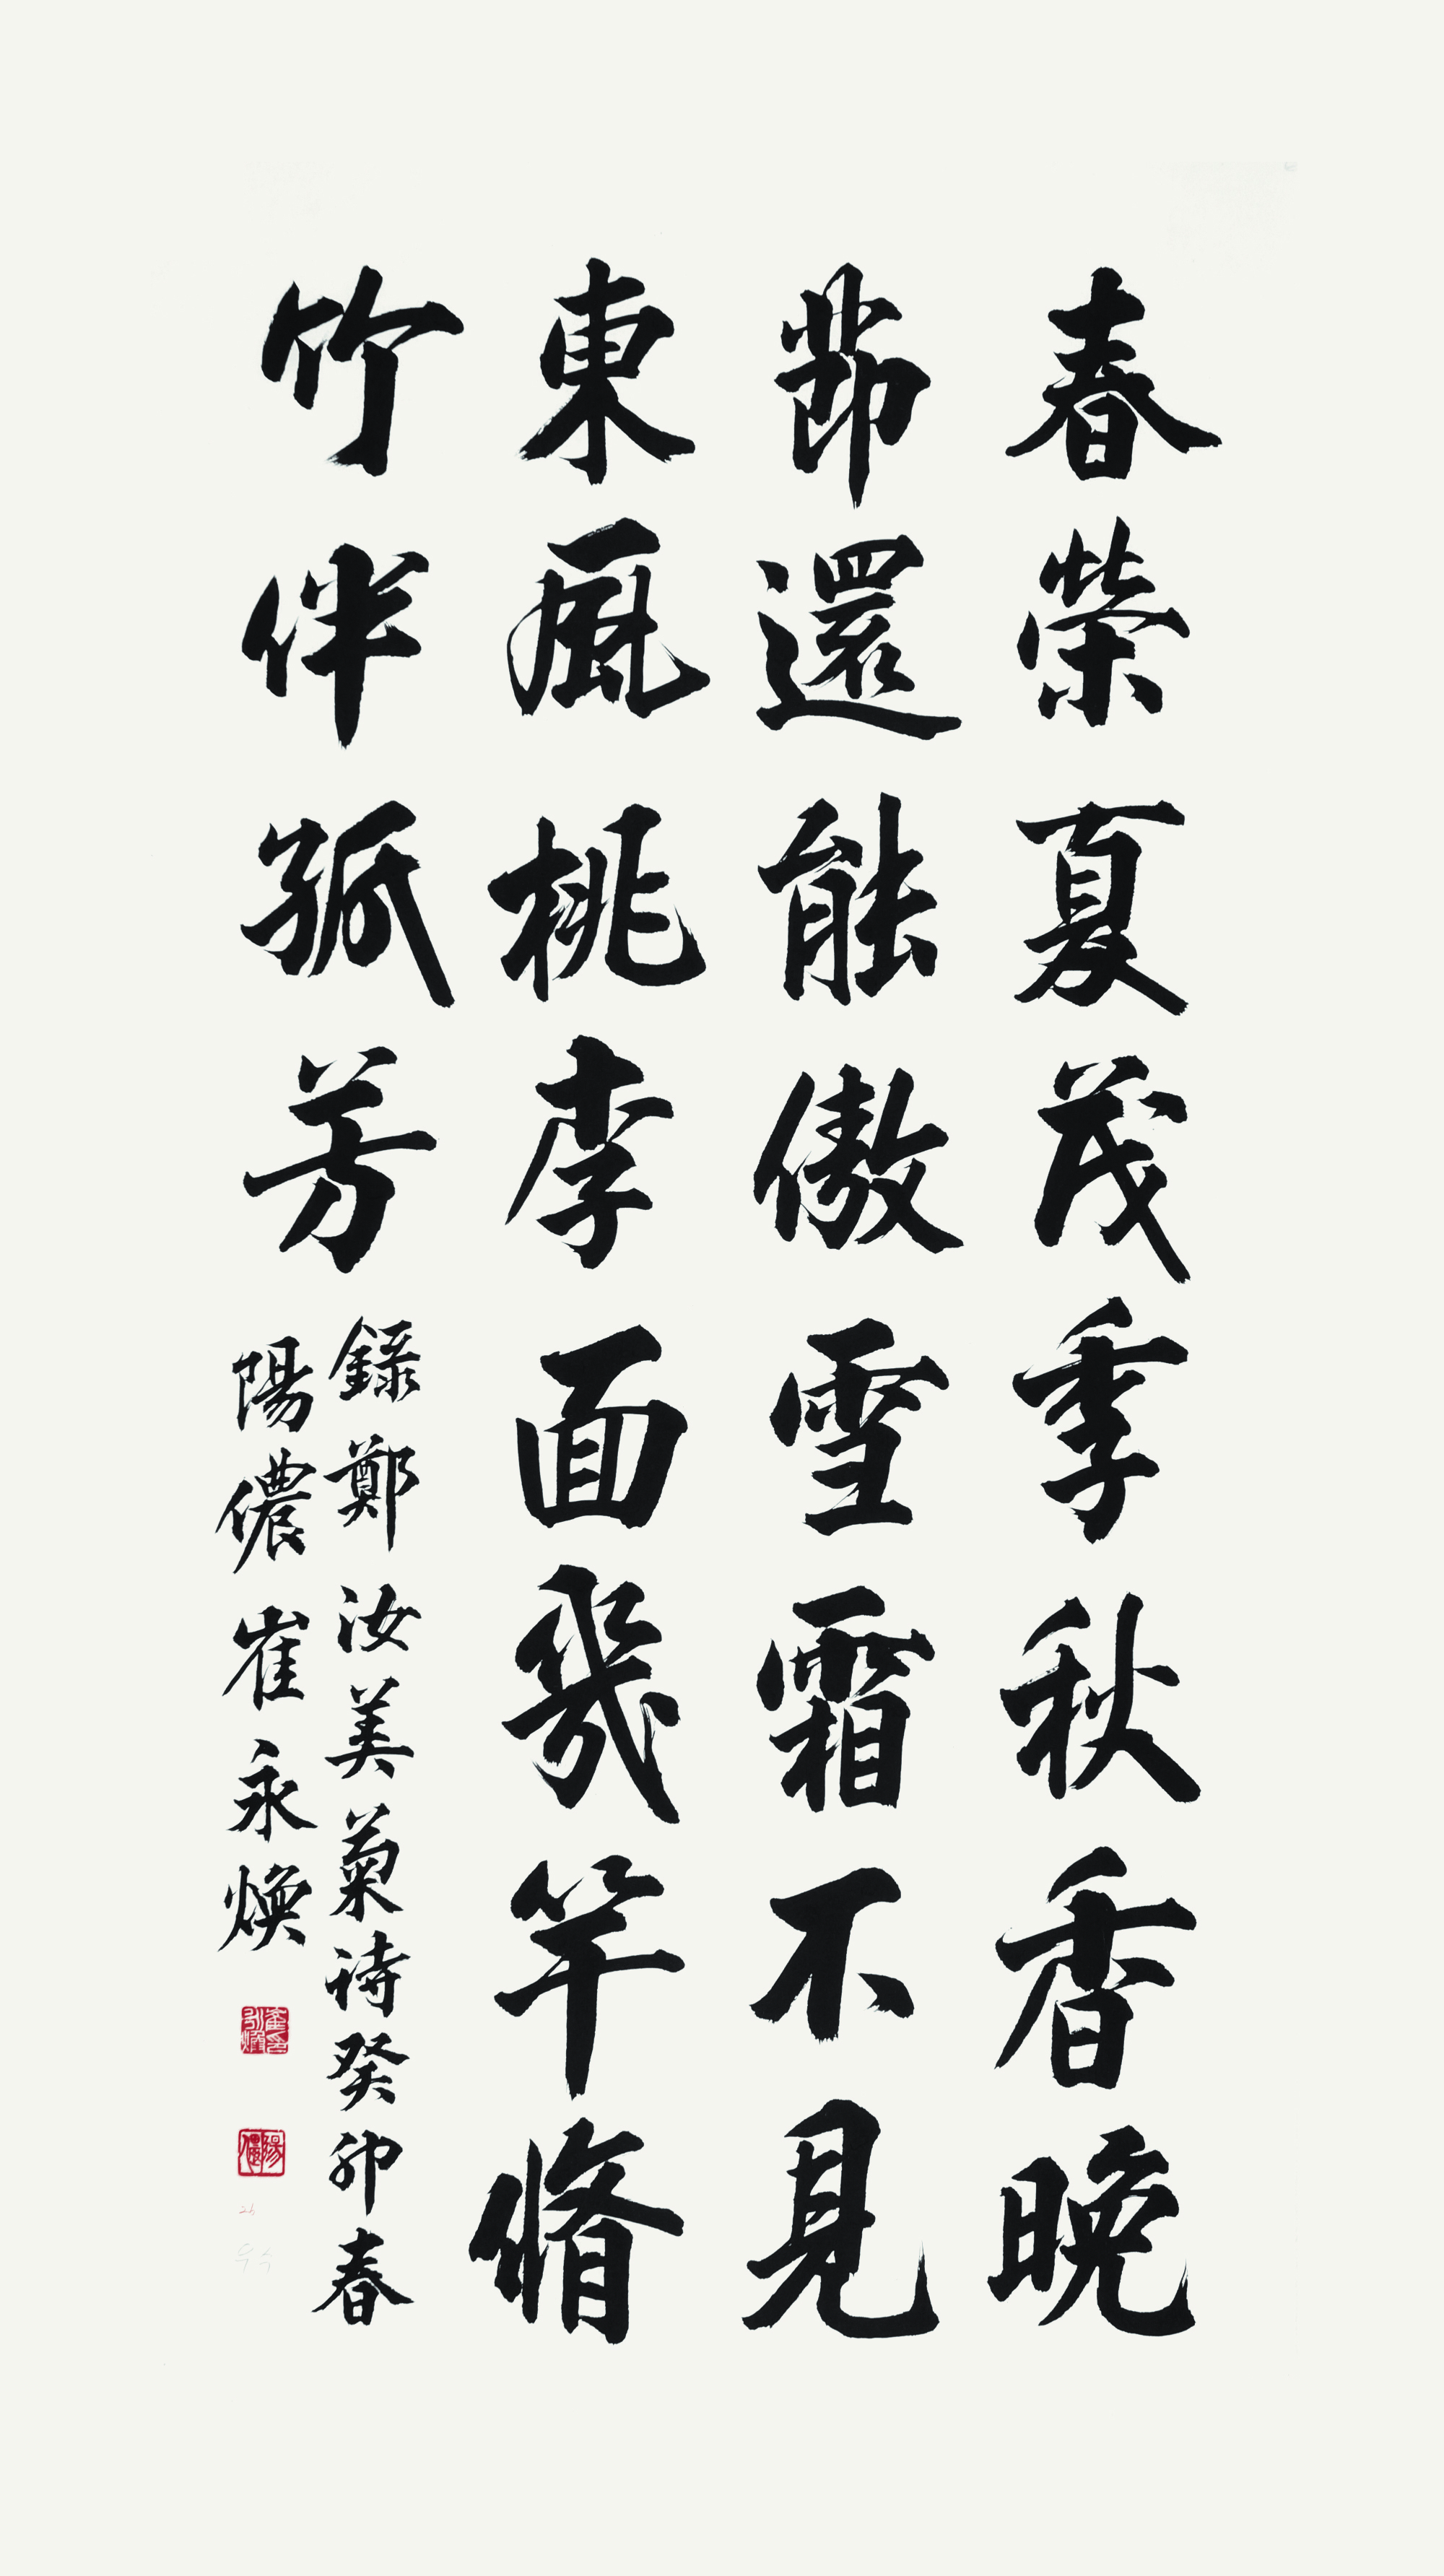 春榮夏茂季秋香晩
莭還能傲雪霜不見
東風桃李面幾竿脩
竹伴孤芳
錄鄭汝美菊詩癸卯春
陽儂崔永煥